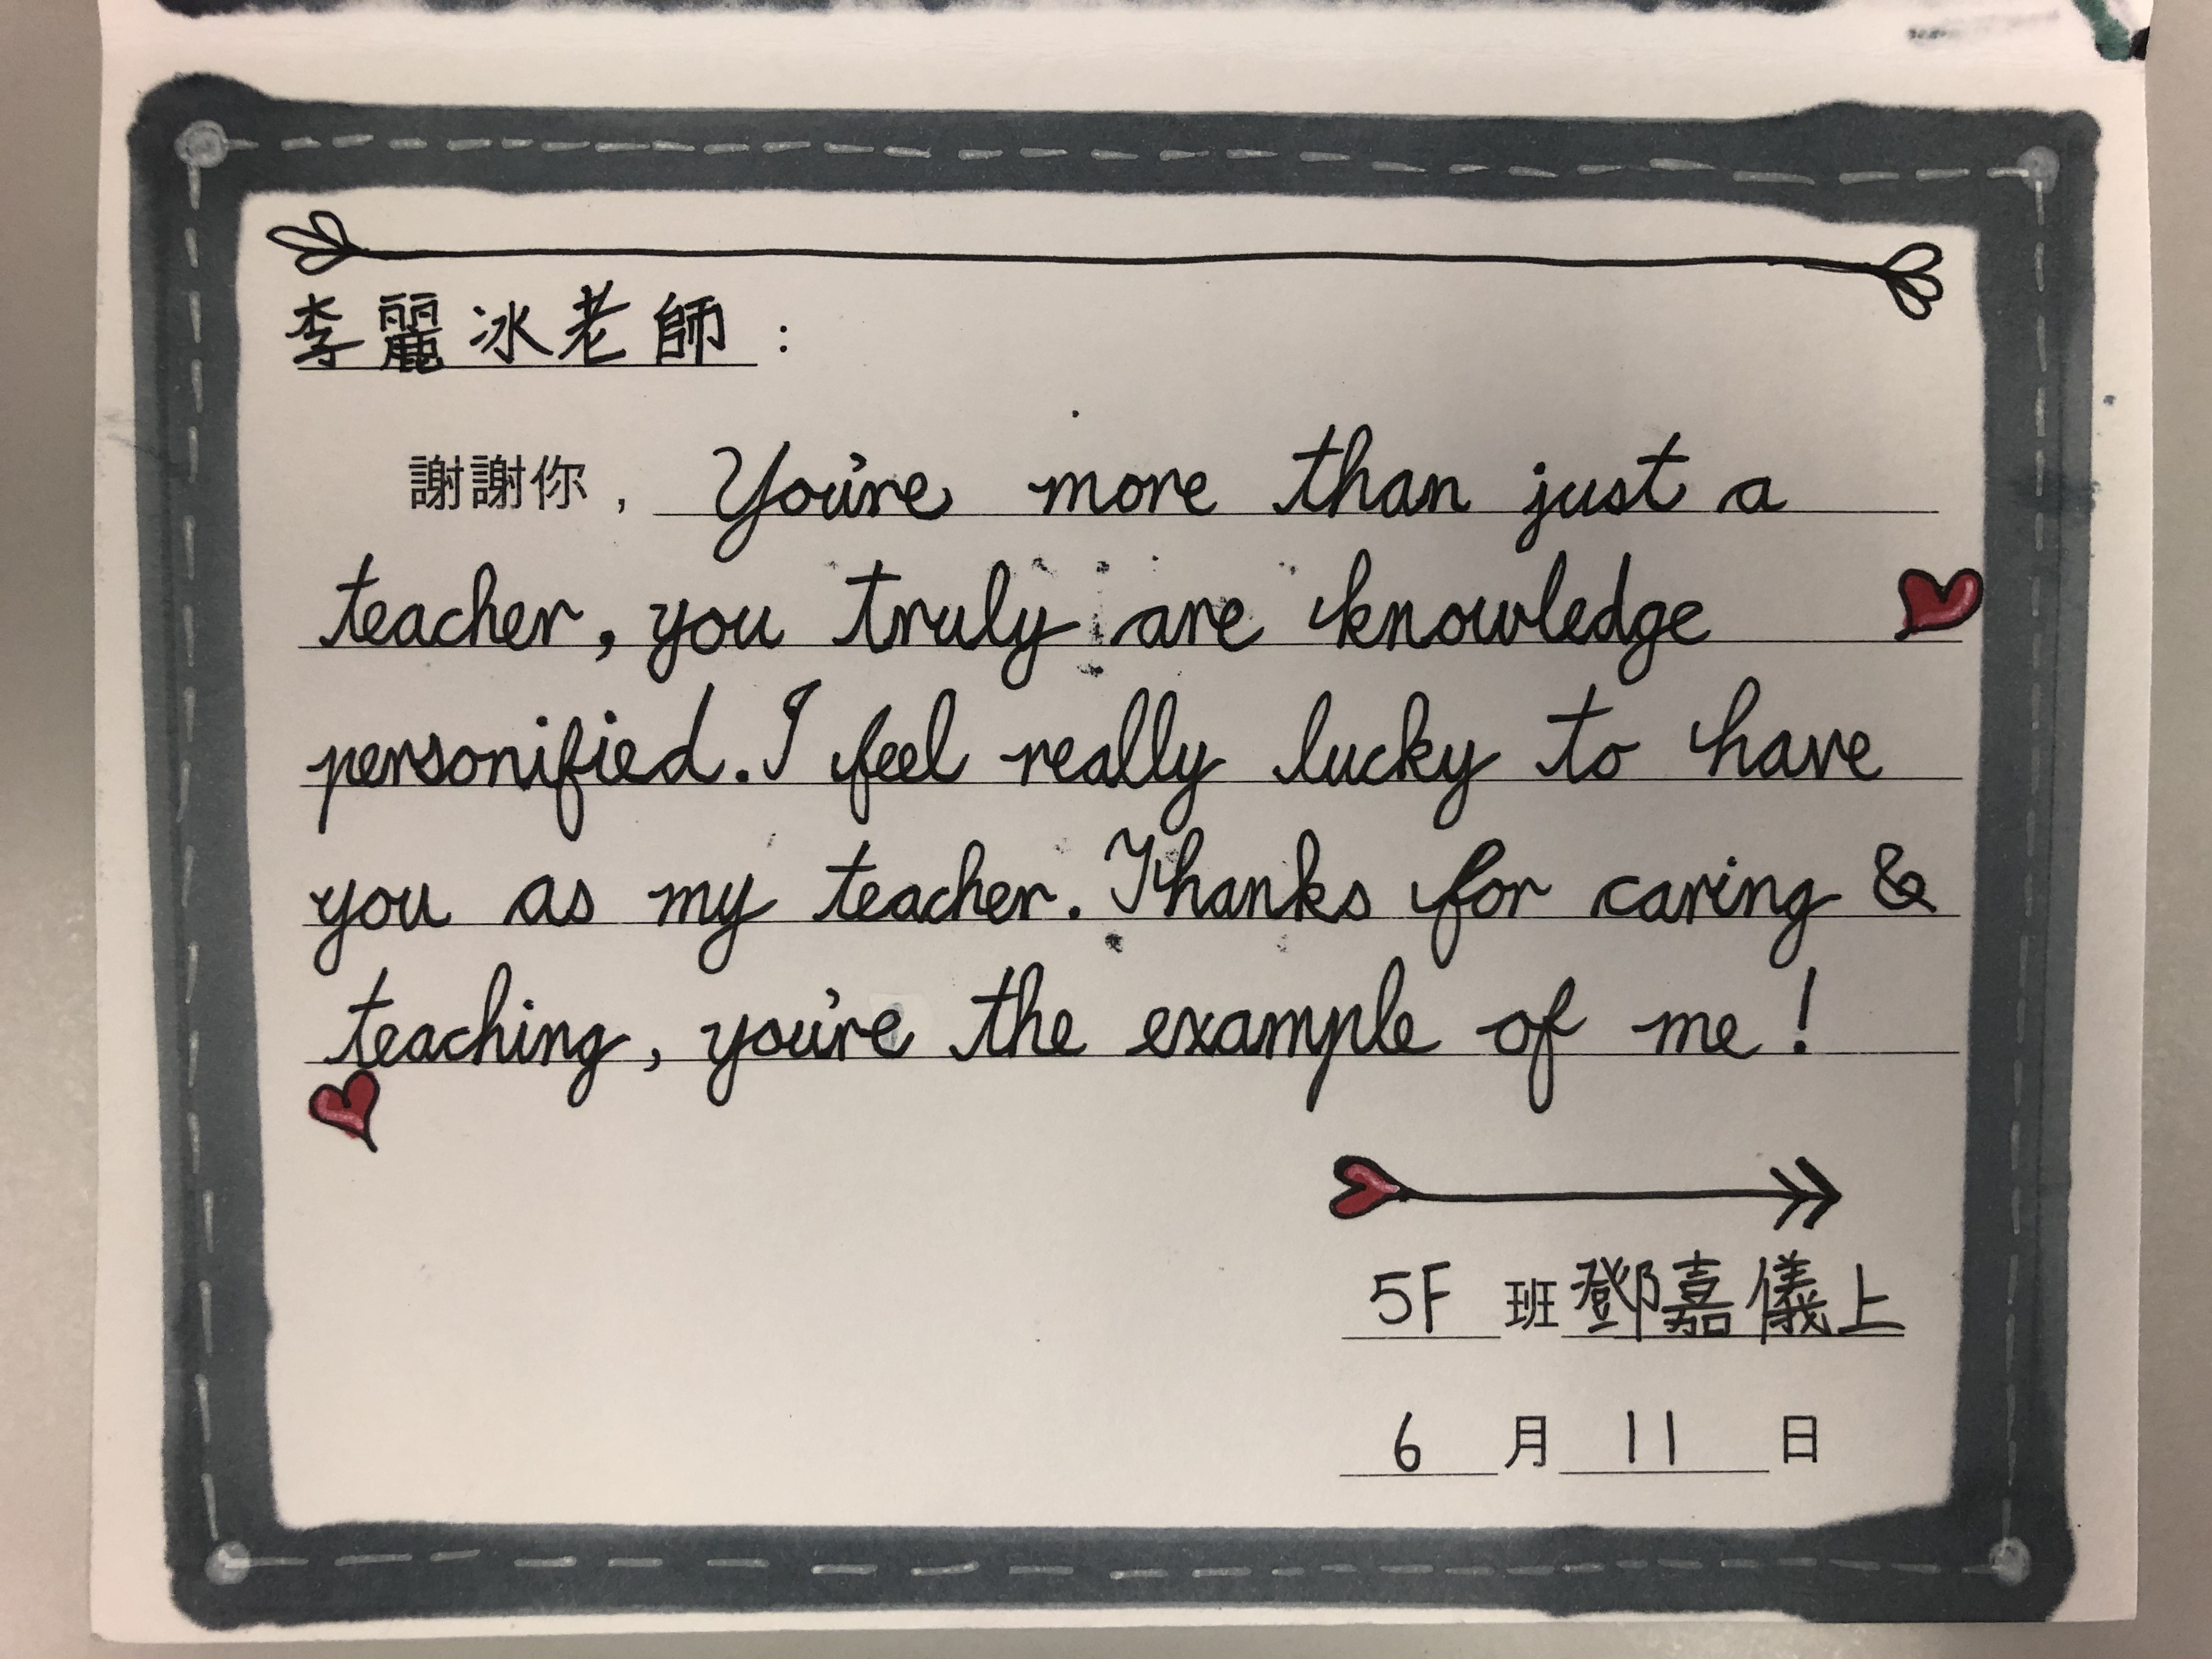 李麗冰老師：
謝謝你，You're more than just a
teacher, you truly are knowledge
personified. I feel really lucky to have
you as my teacher. Thanks for caring &
teaching, you're the example of me!
5F班鄧嘉儀上
6月11日